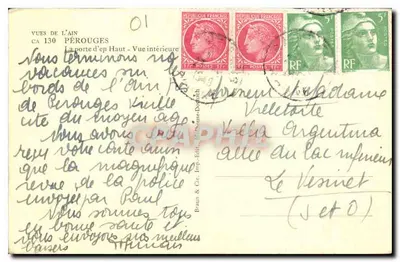 VUES DE L'AIN
CA 130 PÉROUGES
La porte d'en Haut - Vue intérieure
01
Nous terminons nos
vacances sur
bords de l'Ain
de Perouges vieille
cité du moyen age
Nous avons
reçu votre carte ainsi
que la magnifique
revue de la police
envoyée par Paul
Nous sommes tous
en bonne santé et
vous envoyons nos meilleurs
baisers
et Madame
Villa Argentina
allée du Lac inférieur
Le Vesinet
(S et O)
RF
RF
5F